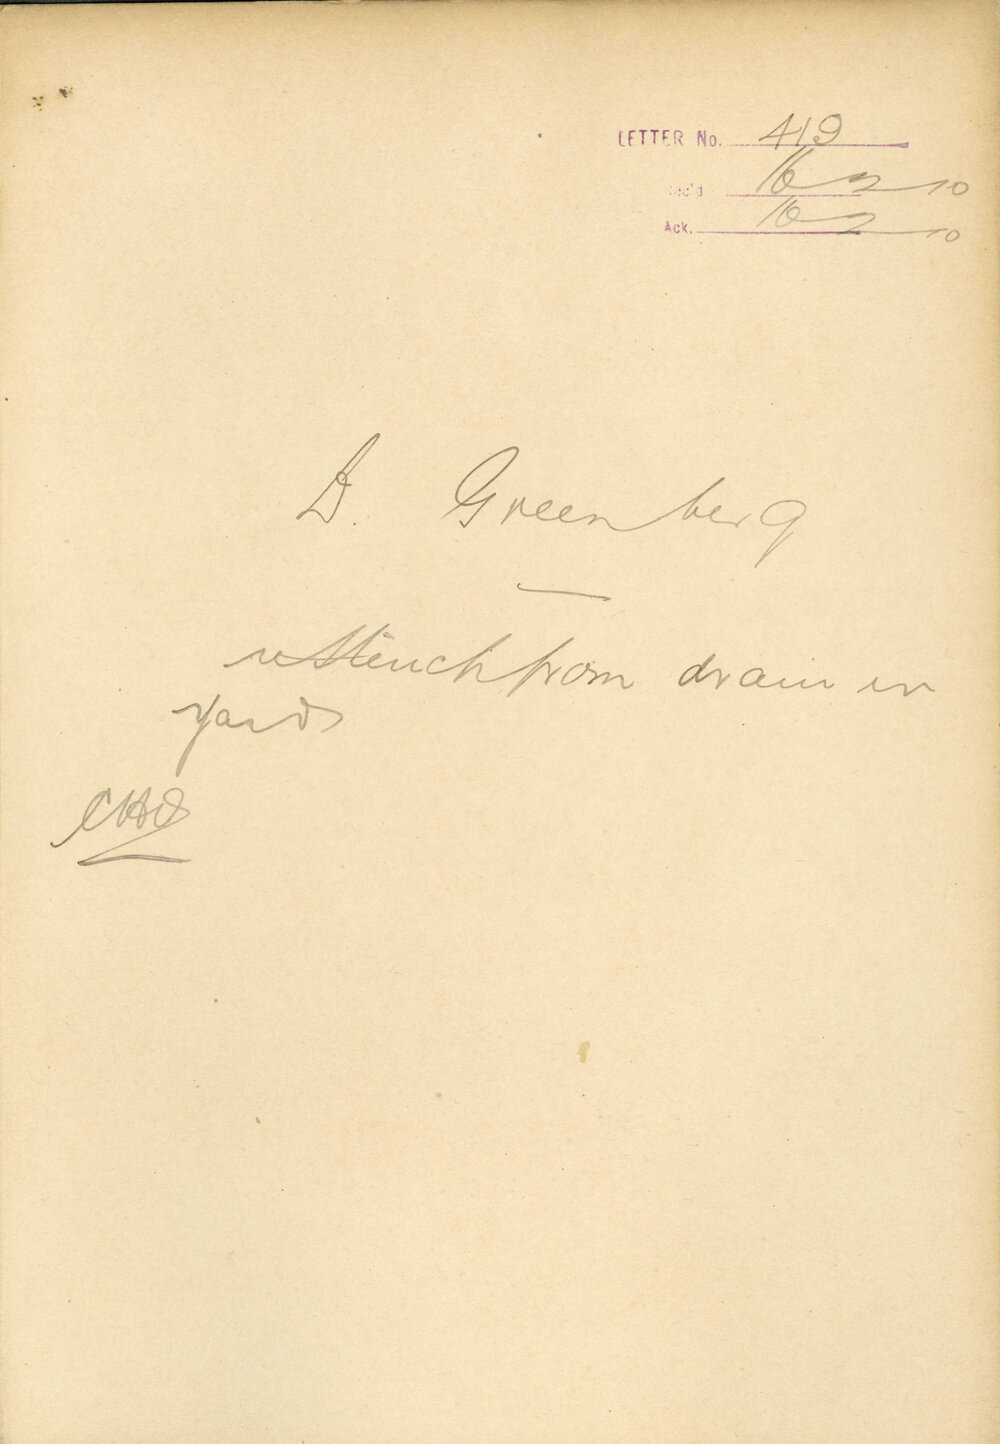 LETTER No. 419
Rec'd 16-2-10
Ack. 16-2-10
D. Greenberg
—
re Stench from drain in
yard
CHO